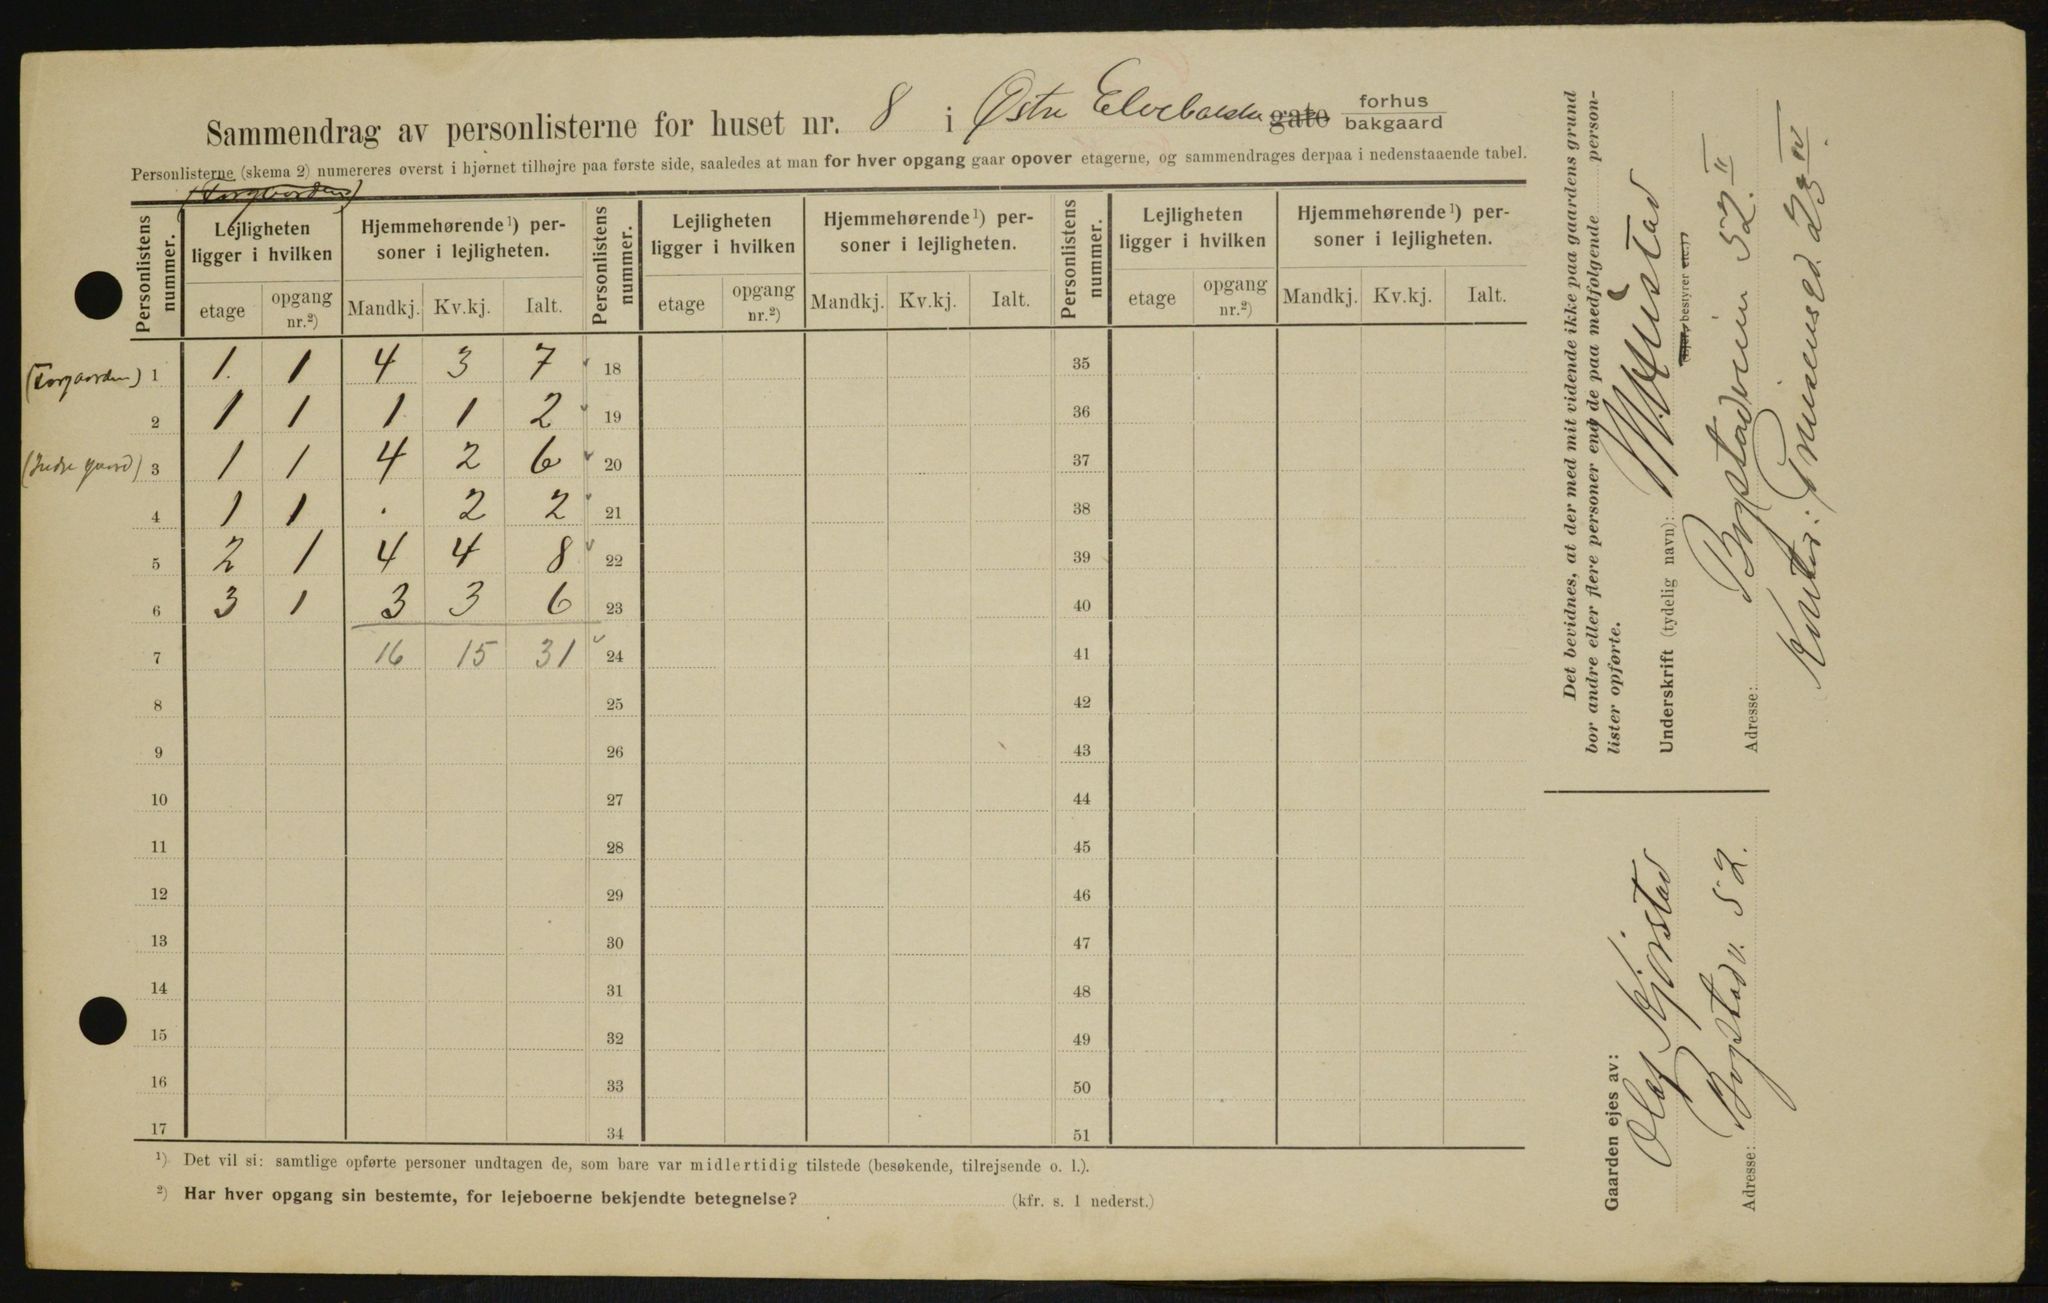 Sammendrag av personlisterne for huset nr. 8 i Østre Elvebakke gate forhus bakgaard
Personlisterne (skema 2) numereres øverst i hjørnet tilhøjre paa første side, saaledes at man for hver opgang gaar opover etagerne, og sammendrages derpaa i nedenstaaende tabel.
(Forgaarden)
Personlistens nummer. Lejligheten ligger i hvilken Hjemmehørende ¹) personer i lejligheten. Personlistens nummer. Lejligheten ligger i hvilken Hjemmehørende ¹) personer i lejligheten. Personlistens nummer. Lejligheten ligger i hvilken Hjemmehørende ¹) personer i lejligheten.
etage opgang nr.²) Mandkj. Kv.kj. Ialt. etage opgang nr.²) Mandkj. Kv.kj. Ialt. etage opgang nr.²) Mandkj. Kv.kj. Ialt.
(Forgaarden) 1 1. 1 4 3 7 18 35
2 1 1 1 1 2 19 36
(Indre gaard) 3 1 1 4 2 6 20 37
4 1 1 . 2 2 21 38
5 2 1 4 4 8 22 39
6 3 1 3 3 6 23 40
7 16 15 31 24 41
8 25 42
9 26 43
10 27 44
11 28 45
12 29 46
13 30 47
14 31 48
15 32 49
16 33 50
17 34 51
¹) Det vil si: samtlige opførte personer undtagen de, som bare var midlertidig tilstede (besøkende, tilrejsende o. l.).
²) Har hver opgang sin bestemte, for lejeboerne bekjendte betegnelse? (kfr. s. 1 nederst.)
Det bevidnes, at der med mit vidende ikke paa gaardens grund
bor andre eller flere personer end de paa medfølgende personlister opførte.
Underskrift (tydelig navn):
(Ejer, bestyrer etc.)
Adresse: Bogstadveien 52 II
Kontor: Grensen
Gaarden ejes av:
Olaf Kjørstad
Adresse: Bogstadv. 52.